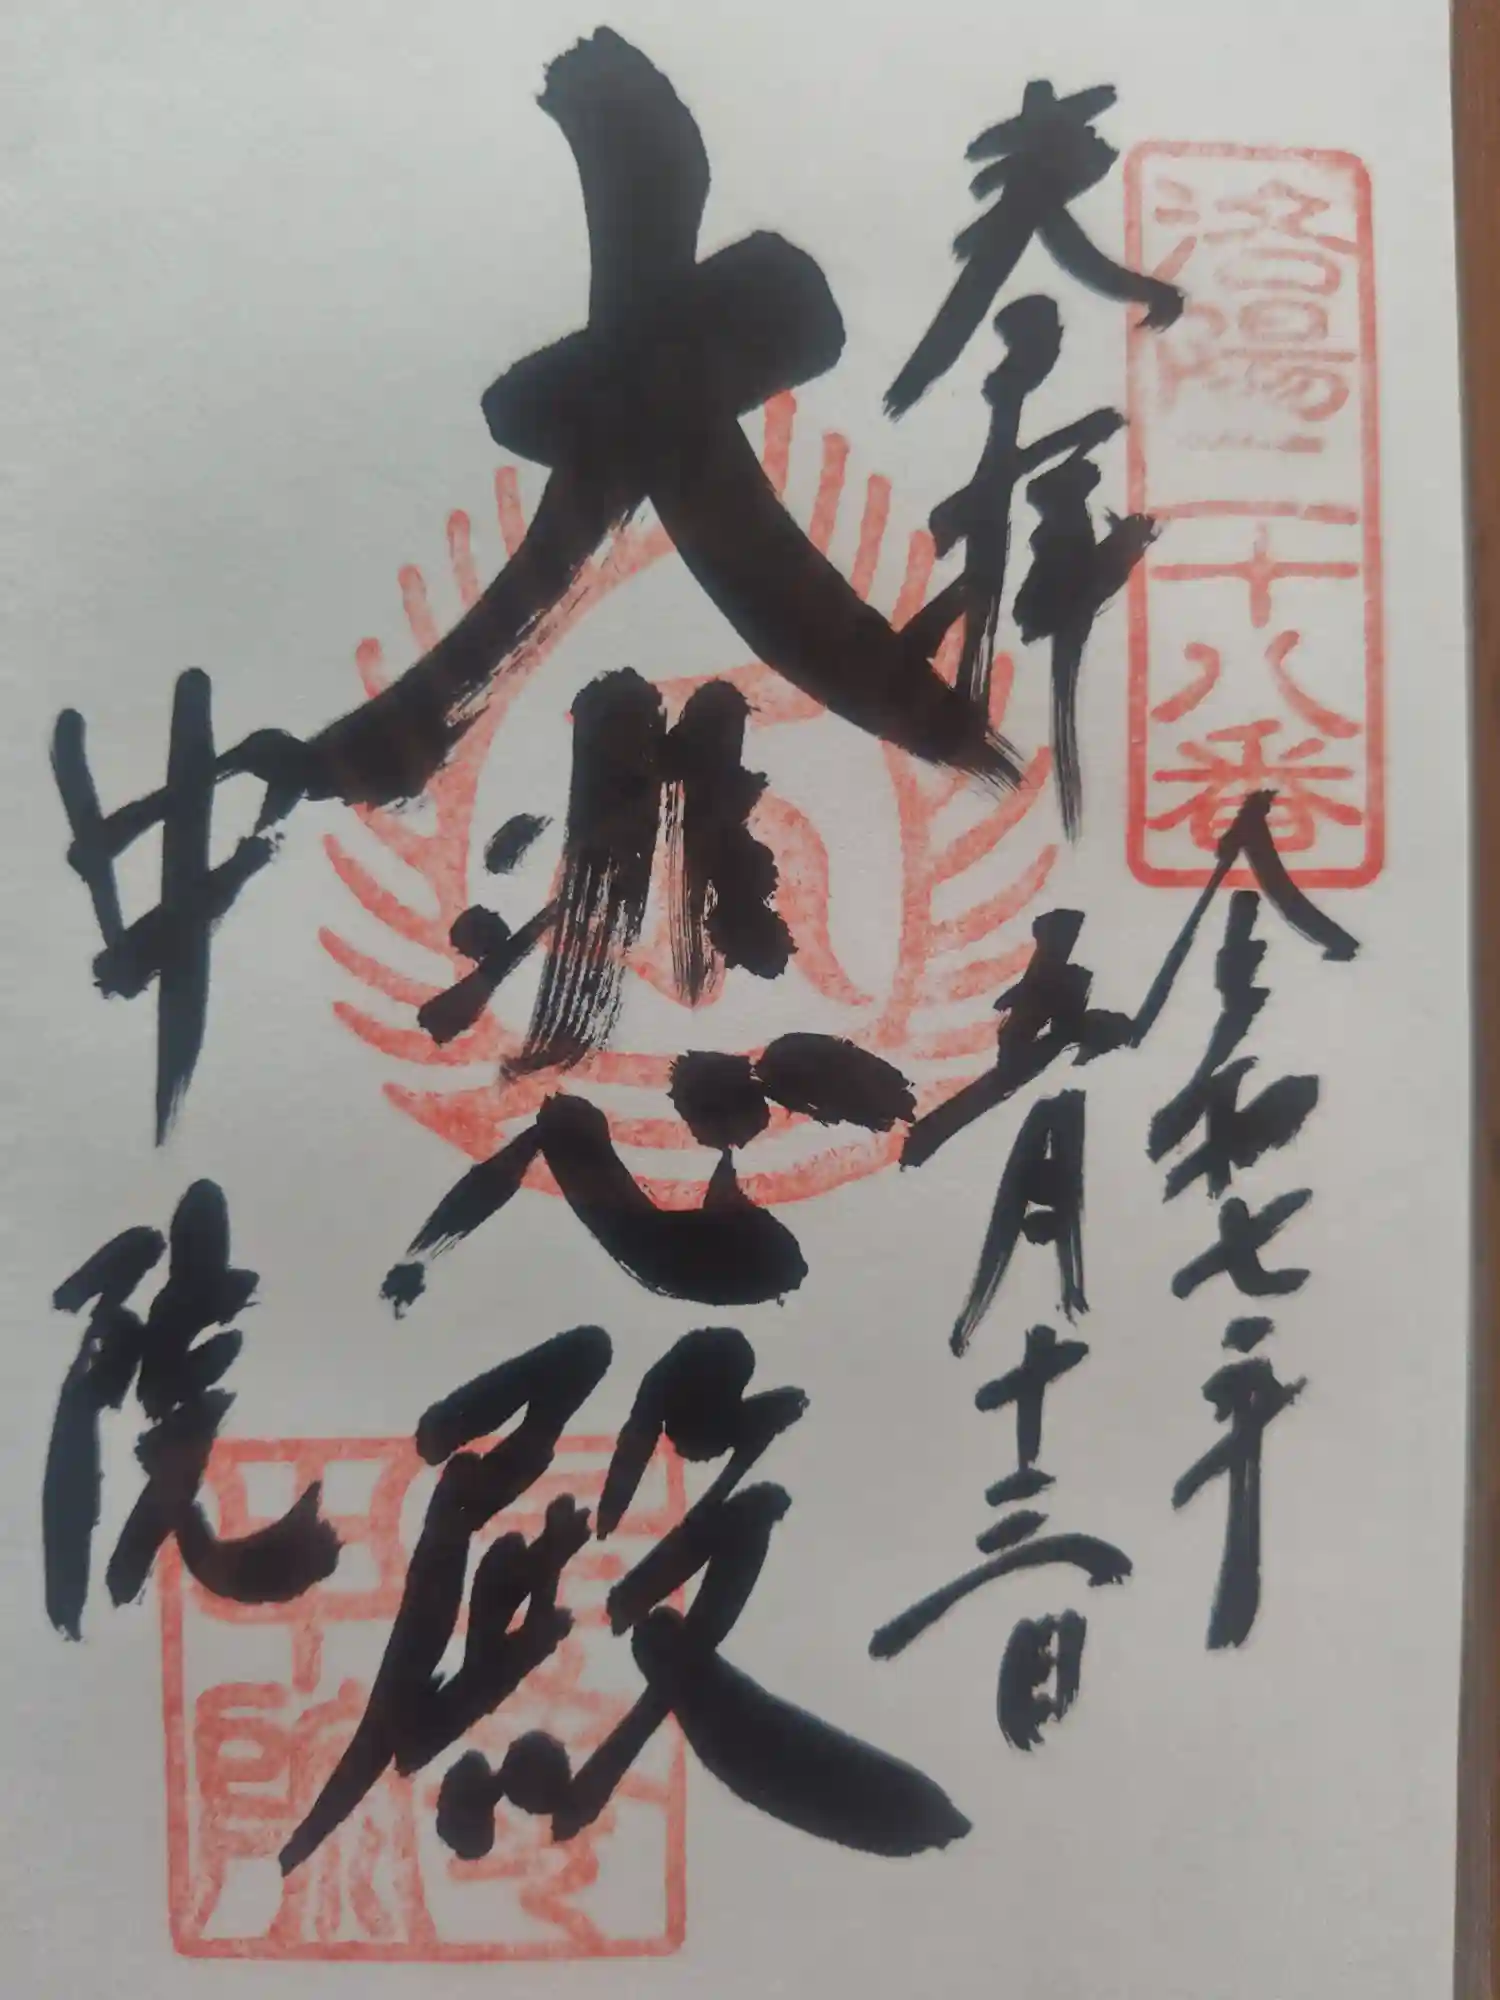 洛陽二十八番
奉拝
令和七年
五月十三日
大悲殿
中院